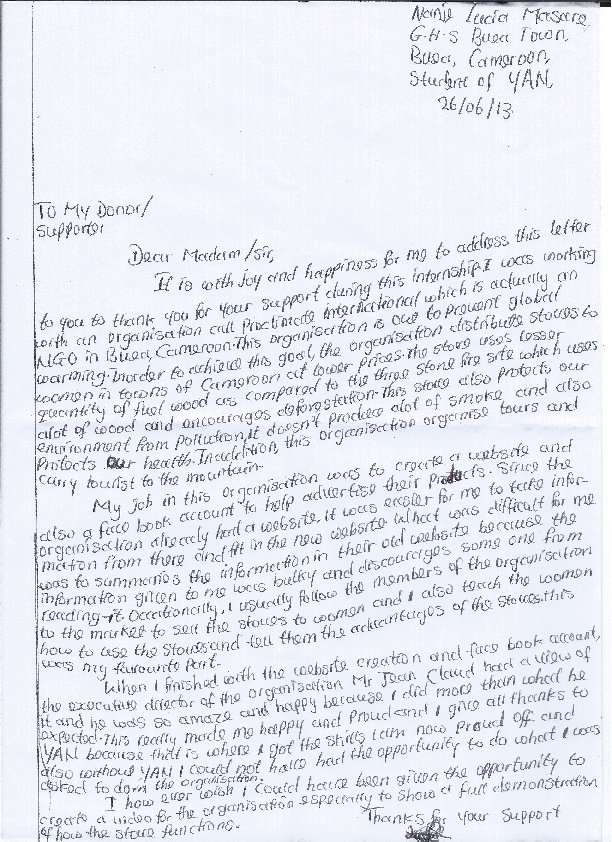 Nanje Lucia Masare
G.H.S Buea Town,
Buea, Cameroon,
Student of YAN,
26/06/13
To My Donor/
Supporter
Dear Madam/Sir,
It is with joy and happiness for me to address this letter
to you to thank you for your support during this internship. I was working
with an organisation call Proclimate International which is actually an
NGO in Buea, Cameroon. This organisation is out to prevent global
warming. Inorder to achieve this goal, the organisation distribute stoves to
women in towns of Cameroon at lower prices. The stove uses lesser
quantity of fuel wood as compared to the three stone fire site which uses
alot of wood and encourages deforestation. This stove also protects our
environment from pollution, it doesn't produce alot of smoke, and also
protects our health. In addition, this organisation organise tours and
carry tourist to the mountain.
My job in this organisation was to create a website and
also a face book account to help advertise their products. Since the
organisation already had a website, it was easier for me to take infor-
mation from there and fit in the new website. What was difficult for me
was to summarios the information in their old website because the
information given to me was bulky and discourages some one from
reading it. Occationally, I usually follow the members of the organisation
to the market to sell the stoves to women and I also teach the women
how to use the stoves and tell them the advantages of the stoves. this
was my favourite part.
When I finished with the website creation and face book account,
the executive director of the organisation Mr Jean Claud had a view of
it and he was so amaze and happy because I did more than what he
expected. This really made me happy and proud and I give all thanks to
YAN because that is where I got the skills I am now proud off and
also without YAN I could not have had the opportunity to do what I was
asked to do in the organisation.
I how ever wish I could have been given the opportunity to
create a video for the organisation especially to show a full demonstration
of how the stove functions.
Thanks for your support